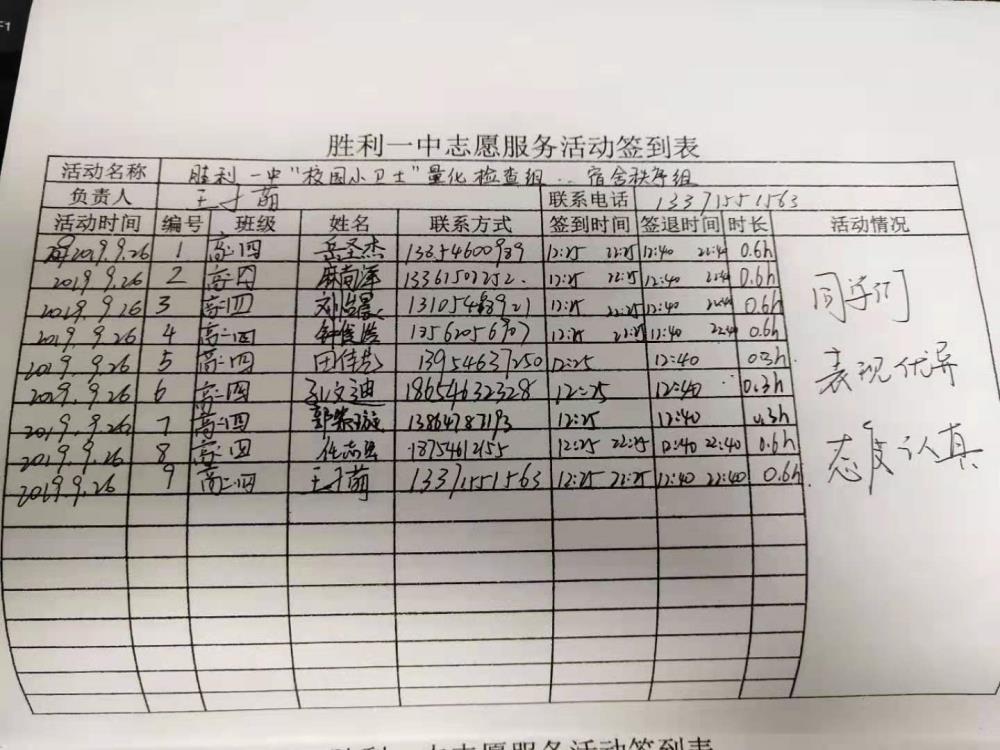 F1
胜利一中志愿服务活动签到表
活动名称 胜利一中"校园小卫士"量化检查组..宿舍秩序组
负责人 王才萌 联系电话 13371551563
活动时间 编号 班级 姓名 联系方式 签到时间 签退时间 时长 活动情况
2019.9.26 1 高二四 岳圣杰 13854600989 12:25 22:25 12:40 22:40 0.6h
2019.9.26 2 高二四 13361502252. 12:25 22:25 12:40 22:40 0.6h
2019.9.26 3 高二四 12:25 22:25 12:40 22:40 0.6h
2019.9.26 4 高二四 12:25 22:25 12:40 22:40 0.6h
2019.9.26 5 高二四 13954637250 12:25 12:40 0.3h
2019.9.26 6 高二四 18654632328 12:25 12:40 0.3h
2019.9.26 7 高二四 13864787193 12:25 12:40 0.3h
2019.9.26 8 高二四 12:25 22:25 12:40 22:40 0.6h
2019.9.26 9 高二四 王才萌 13371551563 12:25 22:25 12:40 22:40 0.6h
同学们
表现优异
态度认真
胜利一中志愿服务活动签到表